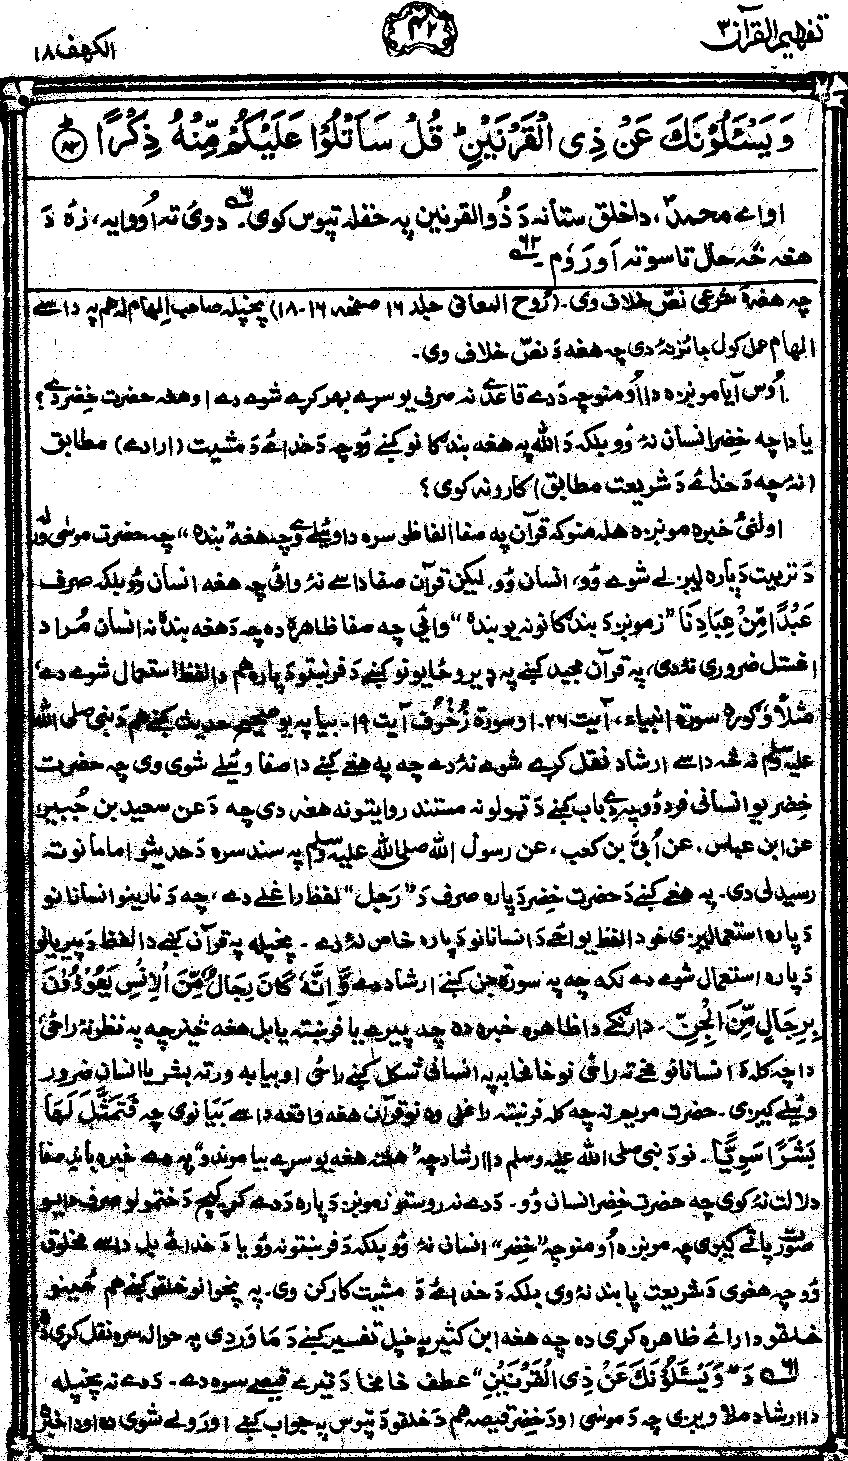 تفهیم القرآن ۳
۴۲
الکهف ۱۸
وَيَسْـَٔلُوْنَكَ عَنْ ذِى الْقَرْنَيْنِ ؕ قُلْ سَاَتْلُوْا عَلَيْكُمْ مِّنْهُ ذِكْرًا ؕ ﴿۸۳﴾
او اے محمدؐ، دا خلق ستا نه دَ ذُو القرنین په حقله تپوس کوی ۶۱. دوئ ته اُووایه، زۀ دَ
هغه څه حال تاسو ته اَوروَم ۶۲ -
چه هغه دَ شرعی نصّ خلاف وی. (رُوح المعانی جلد ۱۶ صفحه ۱۶-۱۸) پخپله صاحب اِلهام له هم په داسے
الهام عمل کول جائز نۀ دی چه هغه دَ نصّ خلاف وی.
اُوس آیا مونږه دا اُومنو چه دَ دے قاعدے نه صرفی یو سړے بهر کړے شوے دے او هغه حضرت خِضر دے؟
یا دا چه خِضر انسان نۀ وُو بلکه دَ الله په هغه بندګانو کښے وُو چه دَ خدائے دَ مشیت (ارادے) مطابق
(نۀ چه دَ خدائے دَ شریعت مطابق) کارونه کوی؟
اولنئ خبره مونږه هله منو که قرآن په صفا الفاظو سره دا وئیلے وے چه هغه "بنده" چه حضرت موسٰی ورله
دَ تربیت دَپاره لیږلے شوے وُو، انسان وُو. لیکن قرآن صفا داسے نۀ وائی چه هغه انسان وُو بلکه صرف
عَبْدًا مِّنْ عِبَادِنَا "زمونږ دَ بندګانو نه یو بنده" وائی چه صفا ظاهره ده چه دَ هغه بنده نه انسان مُراد
اغستل ضروری نۀ دی، په قرآن مجید کښے په ډیرو ځایونو کښے دَ فرښتو دَپاره هم دا لفظ استعمال شوے دے،
مثلاً وګوره سورة انبیاء، آیت ۲۶. او سورة زُخرُف آیت ۱۹. بیا په یو صحیح حدیث کښے هم دَ نبی صلی الله
علیه وسلم نه څه داسے ارشاد نقل کړے شوے نۀ دے چه په هغے کښے دا صفا وئیلے شوی وی چه حضرت
خِضر یو انسانی فرد وُو. په دے باب کښے دَ ټولو نه مستند روایتونه هغه دی چه دَ عن سعید بن جُبیر،
عن ابن عباس، عن اُبیّ بن کعب، عن رسول الله صلی الله علیه وسلم په سند سره دَ حدیثو امامانو ته
رسیدلی دی. په هغے کښے دَ حضرت خِضر دَپاره صرف دَ "رَجُل" لفظ راغلے دے، چه دَ نارینو انسانانو
دَپاره استعمالیږی خو دا لفظ یواځے دَ انسانانو دَپاره خاص نۀ دے. پخپله په قرآن کښے دا لفظ دَ پیریانو
دَپاره استعمال شوے دے لکه چه په سورة جن کښے ارشاد دے وَّاَنَّهٗ كَانَ رِجَالٌ مِّنَ الْاِنْسِ يَعُوْذُوْنَ
بِرِجَالٍ مِّنَ الْجِنِّ. دا رنګے دا ظاهره خبره ده چه پیرے یا فرښته یا بل هغه څیز چه په نظر نۀ راځی،
دا چه کله دَ انسانانو مخے ته راځی نو خامخا به په انسانی شکل کښے راځی او بیا به ورته بشر یا انسان ضرور
وئیلے کیږی. حضرت مریم ته چه کله فرښته راغلی وه نو قرآن هغه واقعه داسے بَیانوی چه فَتَمَثَّلَ لَهَا
بَشَرًا سَوِيًّا. نو دَ نبی صلی الله علیه وسلم دا ارشاد چه "هلته هغه یو سړے بیا موندو" په دے خبره باندِ صفا
دلالت نۀ کوی چه حضرت خِضر انسان وُو. دَ دے نه روستو زمونږ دَپاره دَ دے کړکیچ دَ ختمولو صرف دا یو
صورت پاتے کیږی چه مونږه اُومنو چه "خضر" انسان نۀ وُو بلکه دَ فرښتو نه وُو یا دَ خدائے بل داسے مخلوق
وُو چه هغوی دَ شریعت پابند نۀ وی بلکه دَ خدائے دَ مشیت کارکن وی. په پخوانو خلقو کښے هم ځینو
خلقو دا رائے ظاهره کړی ده چه هغه ابن کثیر په خپل تفسیر کښے دَ ماوَردی په حواله سره نقل کړی ده.
۶۱ دَ "وَيَسْـَٔلُوْنَكَ عَنْ ذِى الْقَرْنَيْنِ" عطف خامخا دَ تیرے قیصے سره دے. دَ دے نه پخپله
دا ارشاد ملاویږی چه دَ موسٰی او دَ خِضر قیصه هم دَ خلقو دَ تپوس په جواب کښے اورولے شوی ده او دا خبره